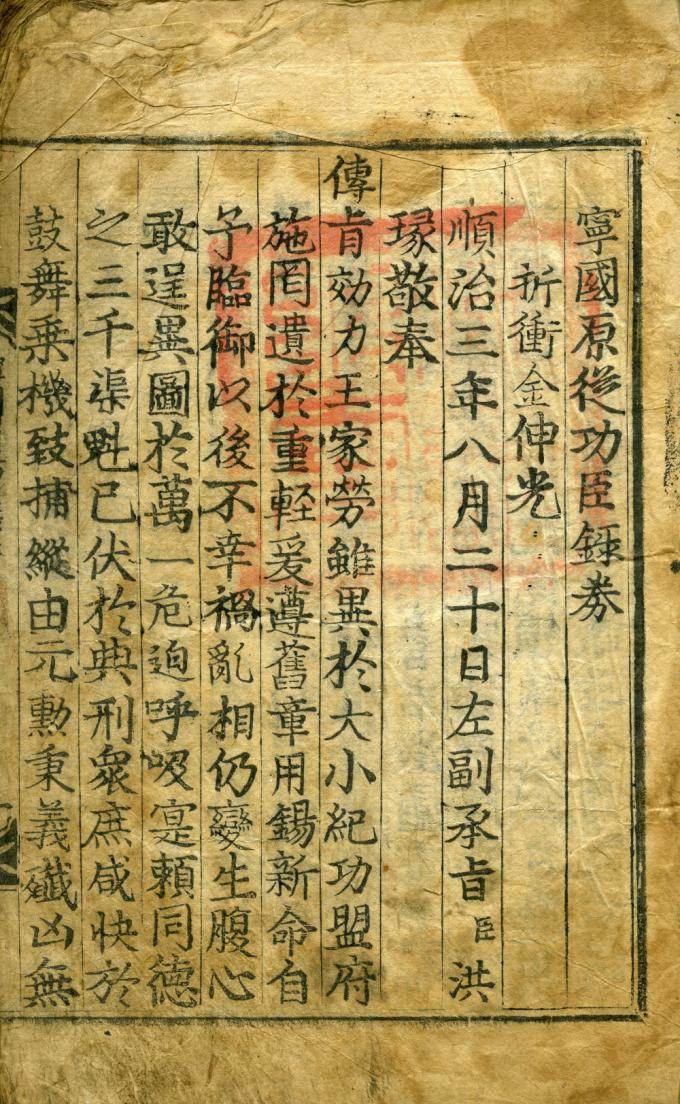 寧國原從功臣錄券
折衝金伸光
順治三年八月二十日左副承旨臣洪
瑑敬奉
傳旨効力王家勞雖異於大小紀功盟府
施罔遺於重軽爰遵舊章用錫新命自
予臨御以後不幸禍亂相仍變生腹心
敢逞異圖於萬一危迫呼吸寔賴同德
之三千渠魁已伏於典刑衆庶咸快於
鼓舞乗機致捕縱由元勳秉義殱凶無